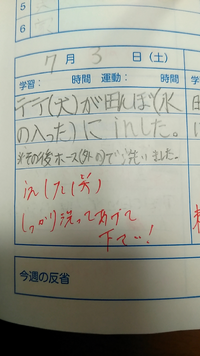 5
6
7月3日(土)
学習: 時間 運動: 時間
テテ(犬)が田んぼ(水
の入った)にinした。
※その後ホース(外の)で洗いました。
inした(笑)
しっかり洗ってあげて
下さい!
今週の反省